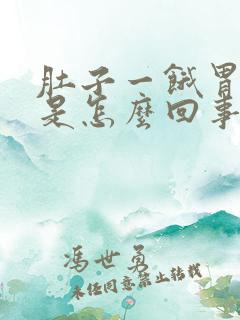 肚子一餓胃
是怎麼回事
馮世勇
未经同意禁止转载